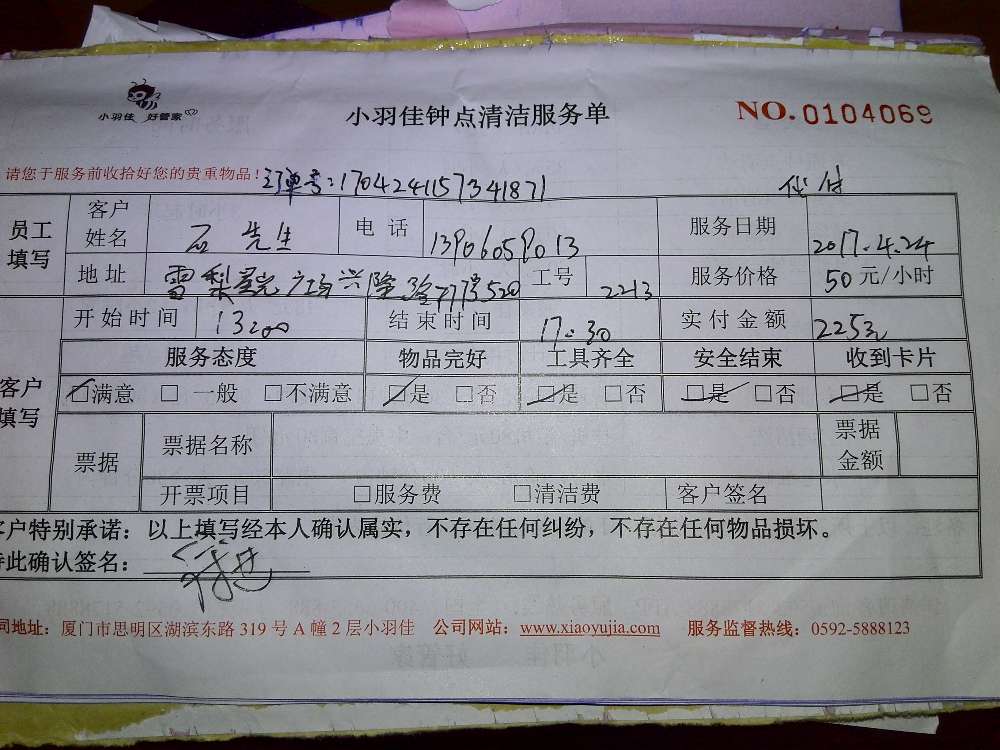 小羽佳 好管家
小羽佳钟点清洁服务单
NO. 0104069
请您于服务前收拾好您的贵重物品！ 订单号:1704241157341871 代付
员工填写 客户姓名 石先生 电话 13906059013 服务日期 2017.4.24
地址 工号 2213 服务价格 50元/小时
开始时间 13:00 结束时间 17:30 实付金额 225元
客户填写 服务态度 物品完好 工具齐全 安全结束 收到卡片
□满意 □一般 □不满意 □是 □否 □是 □否 □是 □否 □是 □否
票据 票据名称 票据金额
开票项目 □服务费 □清洁费 客户签名
客户特别承诺：以上填写经本人确认属实，不存在任何纠纷，不存在任何物品损坏。
特此确认签名：
司地址：厦门市思明区湖滨东路 319 号 A 幢 2 层小羽佳 公司网站：www.xiaoyujia.com 服务监督热线：0592-5888123